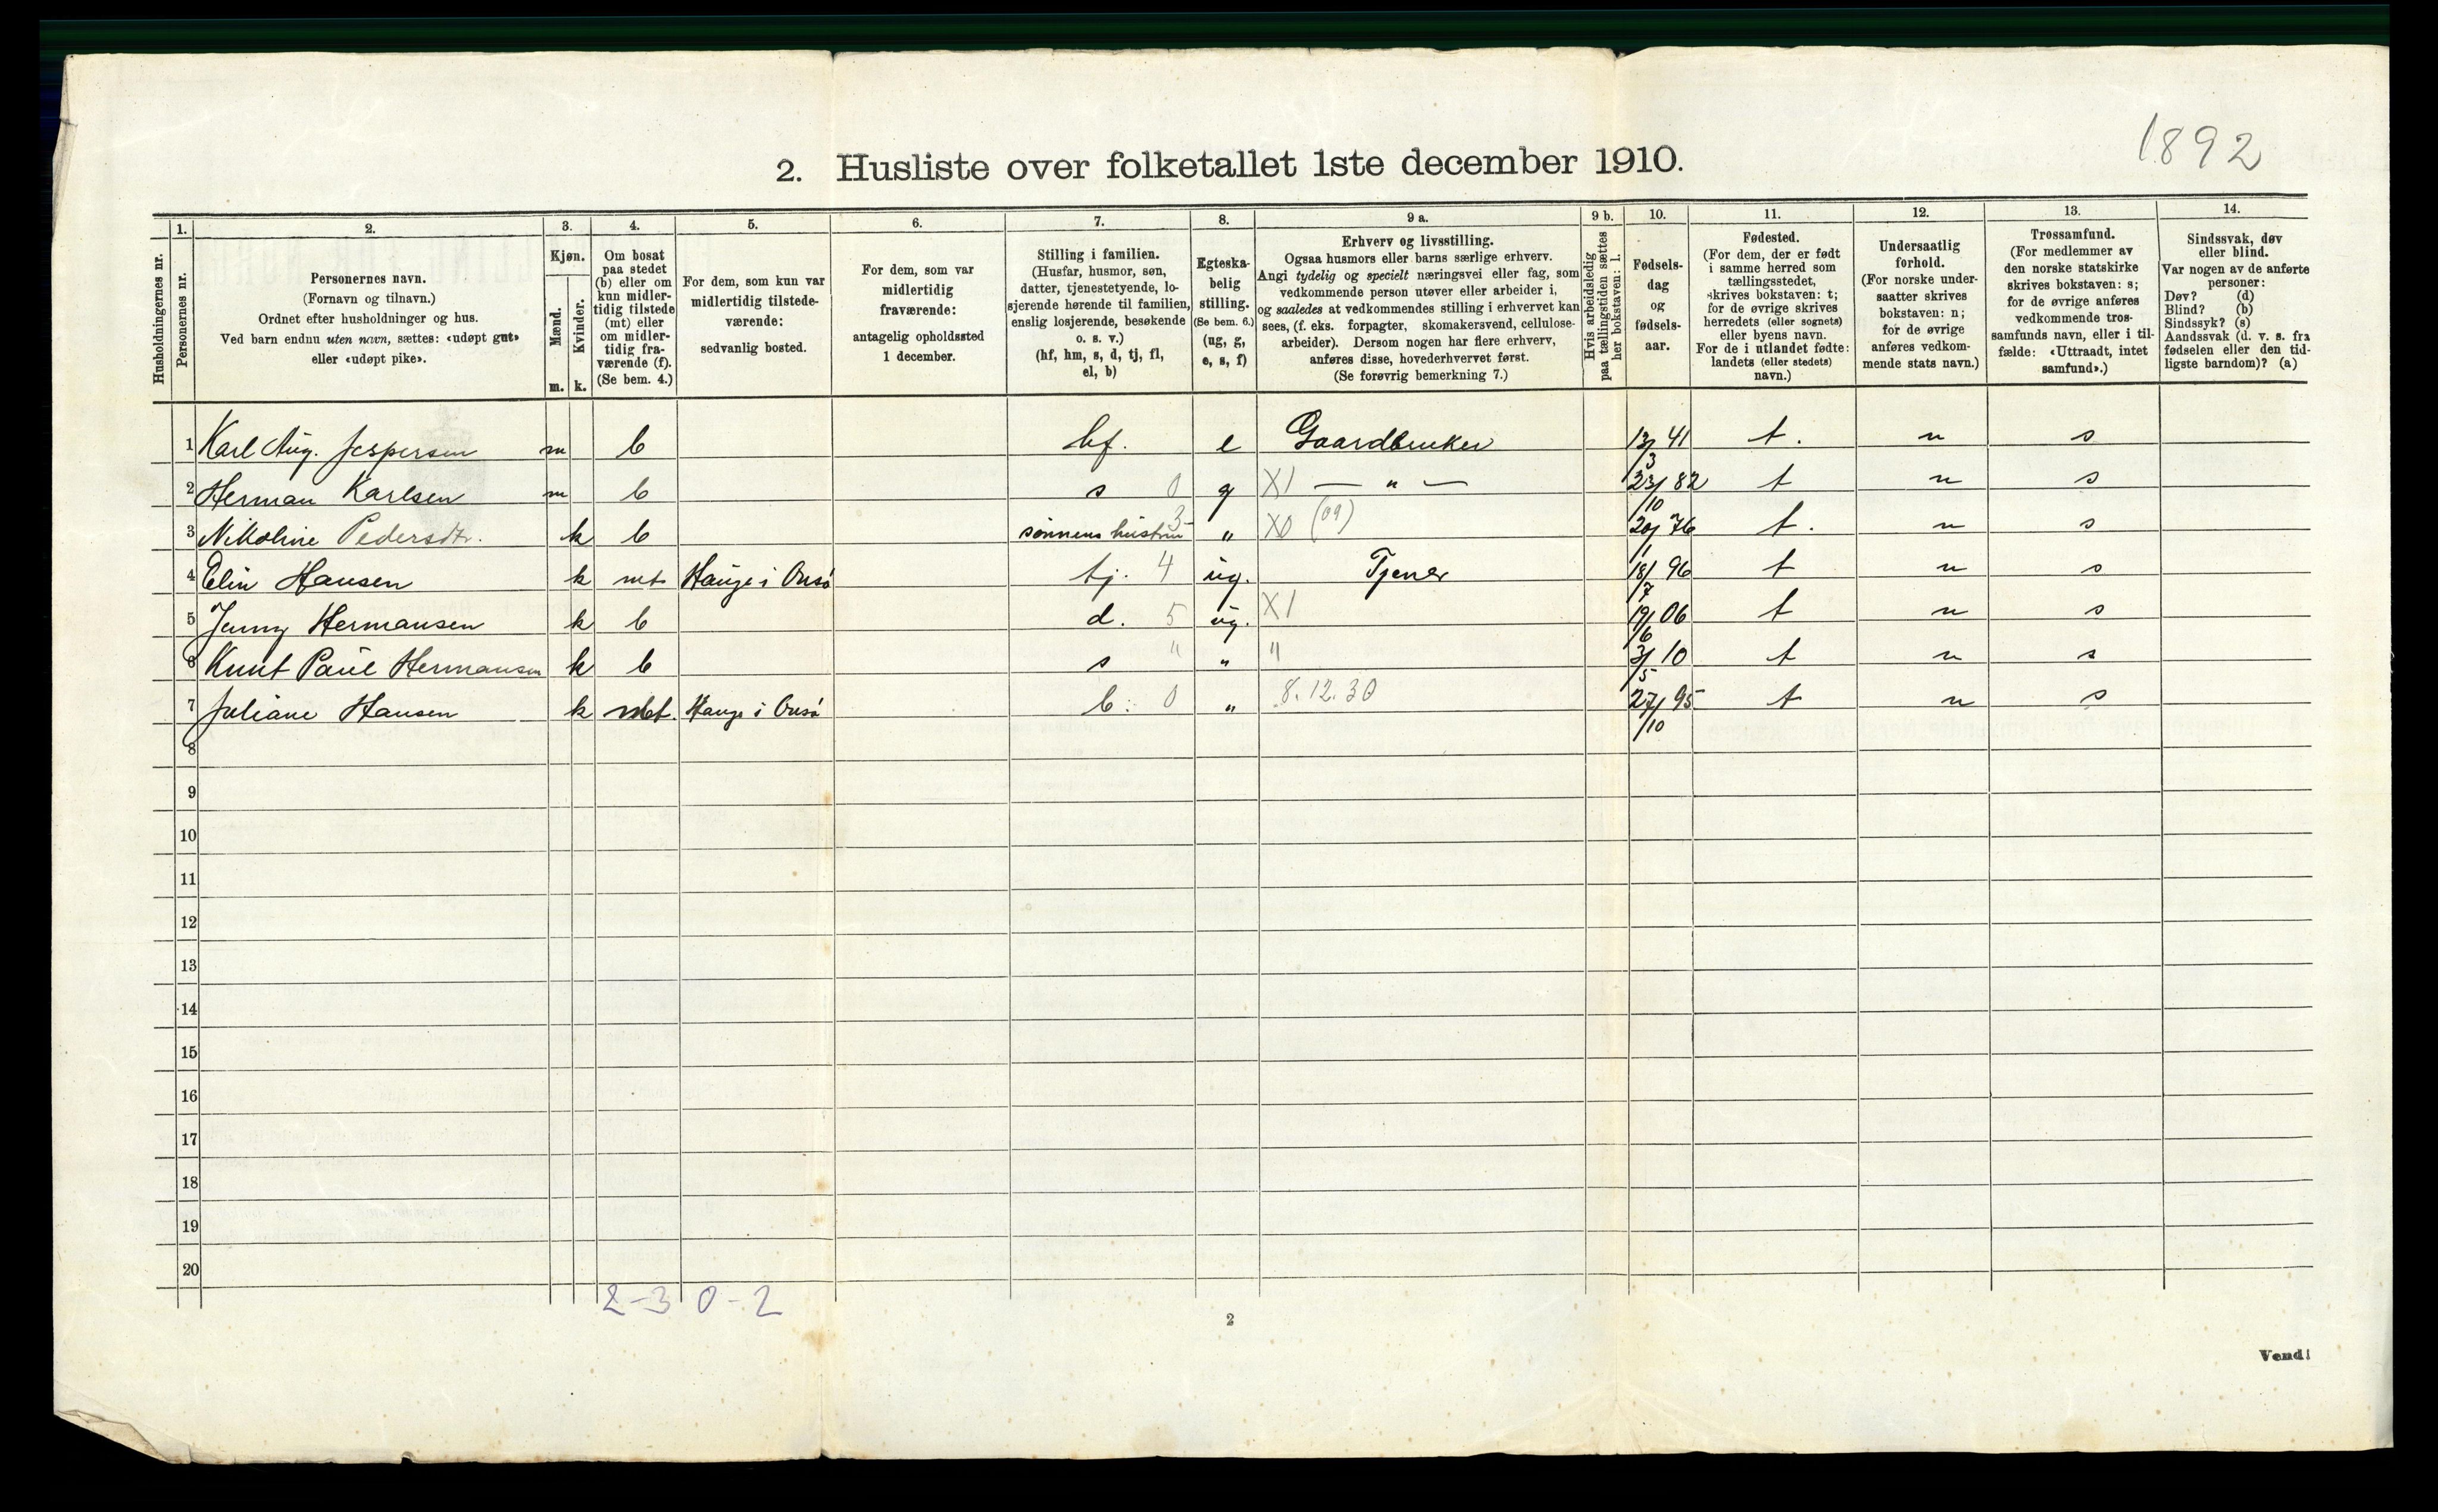 1892
2. Husliste over folketallet 1ste december 1910.
1. 2. 3. 4. 5. 6. 7. 8. 9 a. 9 b. 10. 11. 12. 13. 14.
Husholdningernes nr.
Personernes nr.
Personernes navn.
(Fornavn og tilnavn.)
Ordnet efter husholdninger og hus.
Ved barn endnu uten navn, sættes: «udøpt gut»
eller «udøpt pike».
Kjøn.
Mænd.
Kvinder.
m. k.
Om bosat
paa stedet
(b) eller om
kun midler-
tidig tilstede
(mt) eller
om midler-
tidig fra-
værende (f).
(Se bem. 4.)
For dem, som kun var
midlertidig tilstede-
værende:
sedvanlig bosted.
For dem, som var
midlertidig
fraværende:
antagelig opholdssted
1 december.
Stilling i familien.
(Husfar, husmor, søn,
datter, tjenestetyende, lo-
sjerende hørende til familien,
enslig losjerende, besøkende
o. s. v.)
(hf, hm, s, d, tj, fl,
el, b)
Egteska-
belig
stilling.
(Se bem. 6.)
(ug, g,
e, s, f)
Erhverv og livsstilling.
Ogsaa husmors eller barns særlige erhverv.
Angi tydelig og specielt næringsvei eller fag, som
vedkommende person utøver eller arbeider i,
og saaledes at vedkommendes stilling i erhvervet kan
sees, (f. eks. forpagter, skomakersvend, cellulose-
arbeider). Dersom nogen har flere erhverv,
anføres disse, hovederhvervet først.
(Se forøvrig bemerkning 7.)
Hvis arbeidsledig
paa tællingstiden sættes
her bokstaven: l.
Fødsels-
dag
og
fødsels-
aar.
Fødested.
(For dem, der er født
i samme herred som
tællingsstedet,
skrives bokstaven: t;
for de øvrige skrives
herredets (eller sognets)
eller byens navn.
For de i utlandet fødte:
landets (eller stedets)
navn.)
Undersaatlig
forhold.
(For norske under-
saatter skrives
bokstaven: n;
for de øvrige
anføres vedkom-
mende stats navn.)
Trossamfund.
(For medlemmer av
den norske statskirke
skrives bokstaven: s;
for de øvrige anføres
vedkommende tros-
samfunds navn, eller i til-
fælde: «Uttraadt, intet
samfund».)
Sindssvak, døv
eller blind.
Var nogen av de anførte
personer:
Døv? (d)
Blind? (b)
Sindssyk? (s)
Aandssvak (d. v. s. fra
fødselen eller den tid-
ligste barndom)? (a)
1 Karl Aug. Jespersen m b hf. e Gaardbruker 13/3 41 t. n s
2 Herman Karlsen m b s 0 g X1 — " — 23/10 82 t n s
3 Nikoline Pedersdtr. k b sønnens hustru 3 " X0 (09) 20/1 76 t. n s
4 Elin Hansen k mt Hauge i Onsø tj. 4 ug. Tjener 18/7 96 t n s
5 Jenny Hermansen k b d. 5 ug. X1 19/6 06 t n s
6 Knut Paul Hermansen k b s " " " 3/5 10 t n s
7 Juliane Hansen k mt. Hauge i Onsø b. 0 " 8.12.30 27/10 95 t n s
8
9
10
11
12
13
14
15
16
17
18
19
20
2-3 0-2
2
Vend!